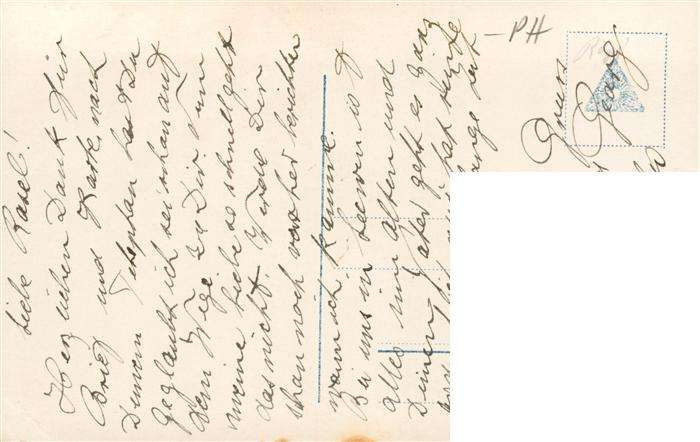 Liebe Rasel!
Herzlichen Dank für
Brief und Karte nach
Deinem Schreiben hast Du
geglaubt ich sei schon auf
dem Wege zu Dir. Nun
meine liebe so schnell geht
das nicht. Werde Dir
schon noch vorher berichten
wann ich komme.
Bei uns in ist
alles im alten und
Deinem Vater geht es ganz
hat
lange
Gruss
Georg
-PH